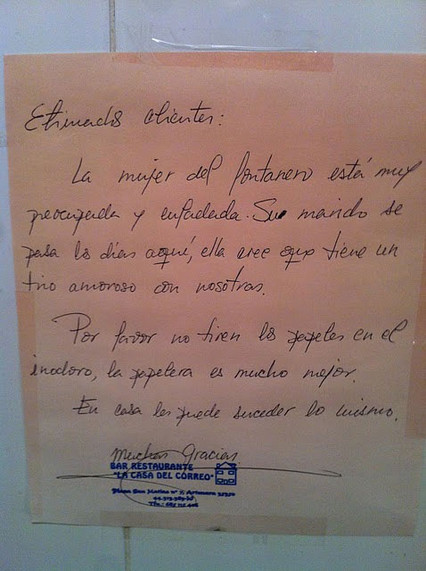 Estimados clientes:
La mujer del fontanero está muy
preocupada y enfadada. Su marido se
pasa los días aquí, ella cree que tiene un
trio amoroso con nosotras.
Por favor no tiren los papeles en el
inodoro, la papelera es mucho mejor.
En casa les puede suceder lo mismo.
Muchas Gracias
BAR RESTAURANTE
"LA CASA DEL CORREO"